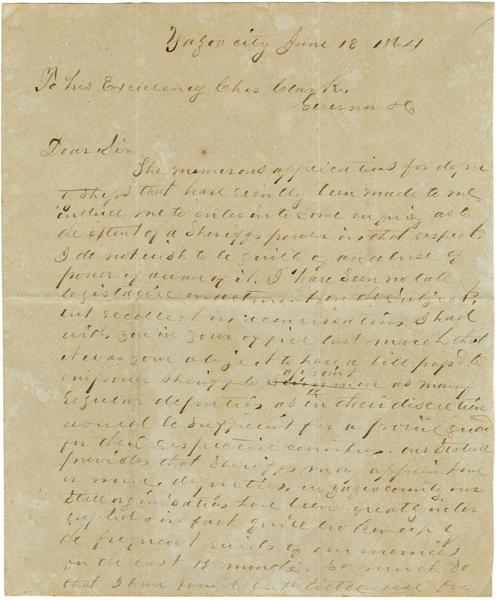 Yazoo city June 18 1864
To his Excellency Chas Clark,
Governor &c
Dear Sir
The numerous applications for depu
ty ships that have recently been made to me
induce me to enter into some enquiry as to
the extent of a Sheriffs power in that respect.
I do not wish to be guilty of an abuse of
power if aware of it. I have seen no late
legislative enactment on the subject,
but recollect in a conversation I had
with you in your office last march that
it was your object to have a bill passed to
empower Sheriffs to appoint as many
regular deputies as in their discretion
would be sufficient for a provost guard
for their respective counties. our Statute
provides that Sheriffs may appoint one
or more deputies, in yazoo county our
State organisations have been greatly inter
rupted & in fact quite broken up by
the frequent raids of our enemies
in the last 15 months. So much so
that I have found but little use for